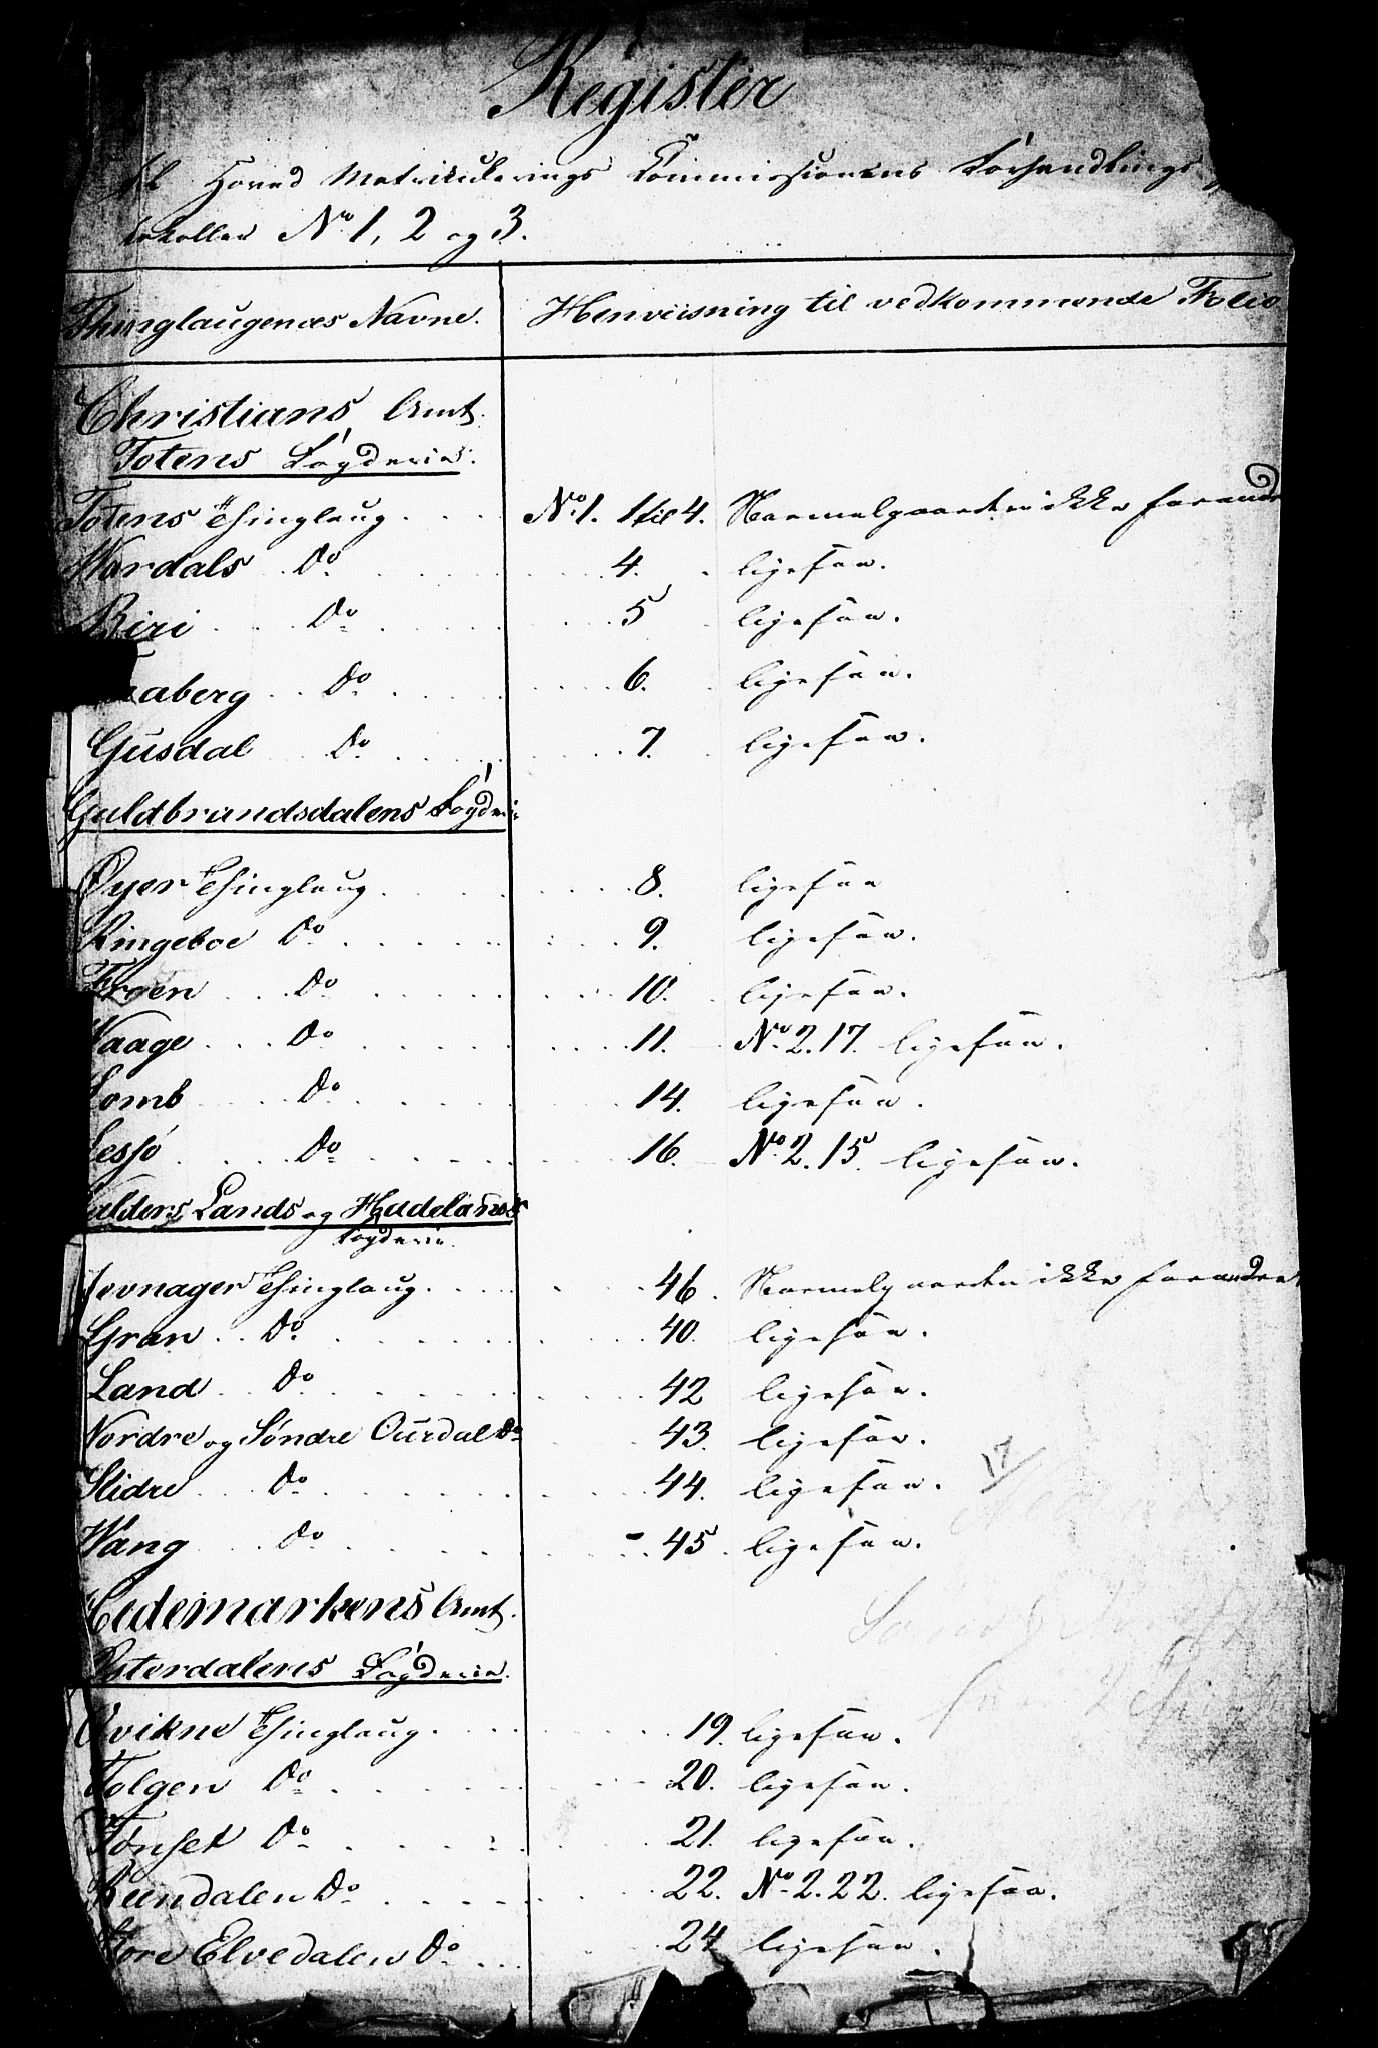 Register
til Hoved Matriculerings Commissionens Forhandlings
tokoller No 1, 2 og 3.
Thinglaugenes Navne. Henviisning til vedkommende Folio
Christians Amt.
Totens Fogderie.
Totens Thinglaug . . . No 1. 1 til 4. Normalgaarden ikke forandr
Wardals Do . . . 4. ligesaa.
Biri . . Do . . . 5 ligesaa.
aaberg . . Do . . . 6. ligesaa.
Gusdal Do . . . 7. ligesaa.
Guldbrandsdalens Fogderi
Øyer Thinglaug . . . 8. ligesaa
Ringeboe Do . . . 9. ligesaa.
Froen . . Do . . . 10. ligesaa.
Waage . . Do . . . 11. No 2. 17. ligesaa.
Lomb . . Do . . . 14. ligesaa.
Lessø . . Do . . . 16. No 2. 15. ligesaa.
alders, Lands og Hadelands
Fogderie.
Jevnager Thinglaug . . . 46. Normalgaarden ikke forandret
Gran . . Do . . . 40. ligesaa.
Land . . Do . . . 42 ligesaa.
Nordre og Søndre Ourdal Do 43. ligesaa.
Slidre . . Do . . . 44. ligesaa. 17
Wang . . Do . . . 45. ligesaa.
Hedemarkens Amt.
Østerdalens Fogderie.
Qvikne Thinglaug . . . 19. ligesaa.
Tolgen Do . . . 20. ligesaa.
Tønset Do . . . 21. ligesaa.
Reendalen Do . . . 22. No 2. 22. ligesaa.
Store Elvedalen Do . . . 24 ligesaa.